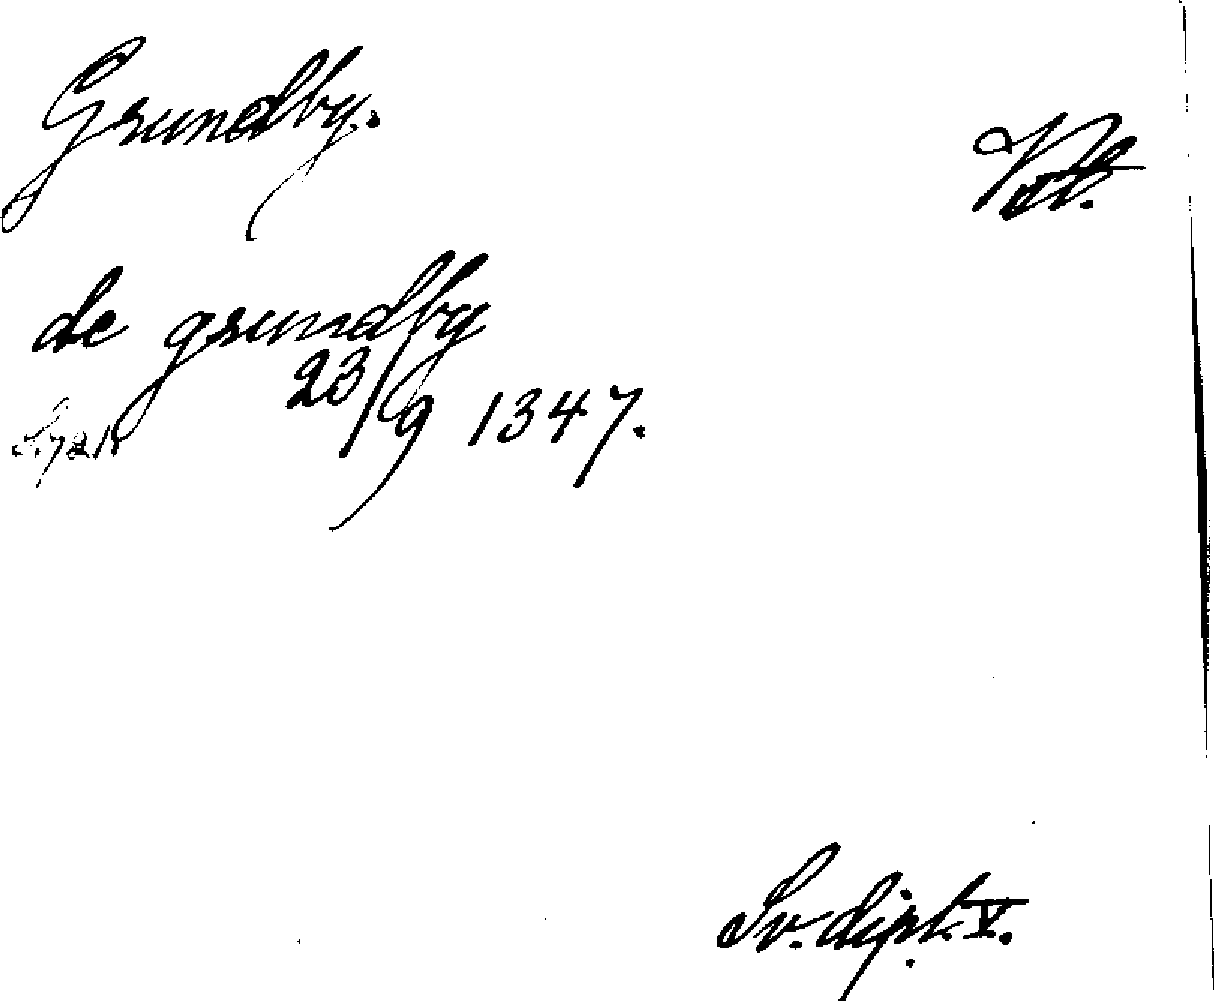 Grundby.
de grundby
23/9 1347.
Sv. dipl. V.